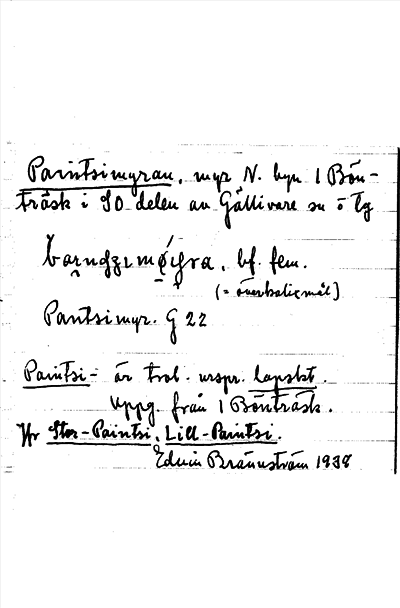 Paintsimyran, myr N. byn 1 Bön-
träsk i SO delen av Gällivare sn o tg
bf. fem.
(= överkalixmål)
Pantsimyr. G 22
Paintsi- är trol. urspr. lapskt.
Uppg. från 1 Bönträsk.
Jfr Stor-Paintsi, Lill-Paintsi.
Edvin Brännström 1938